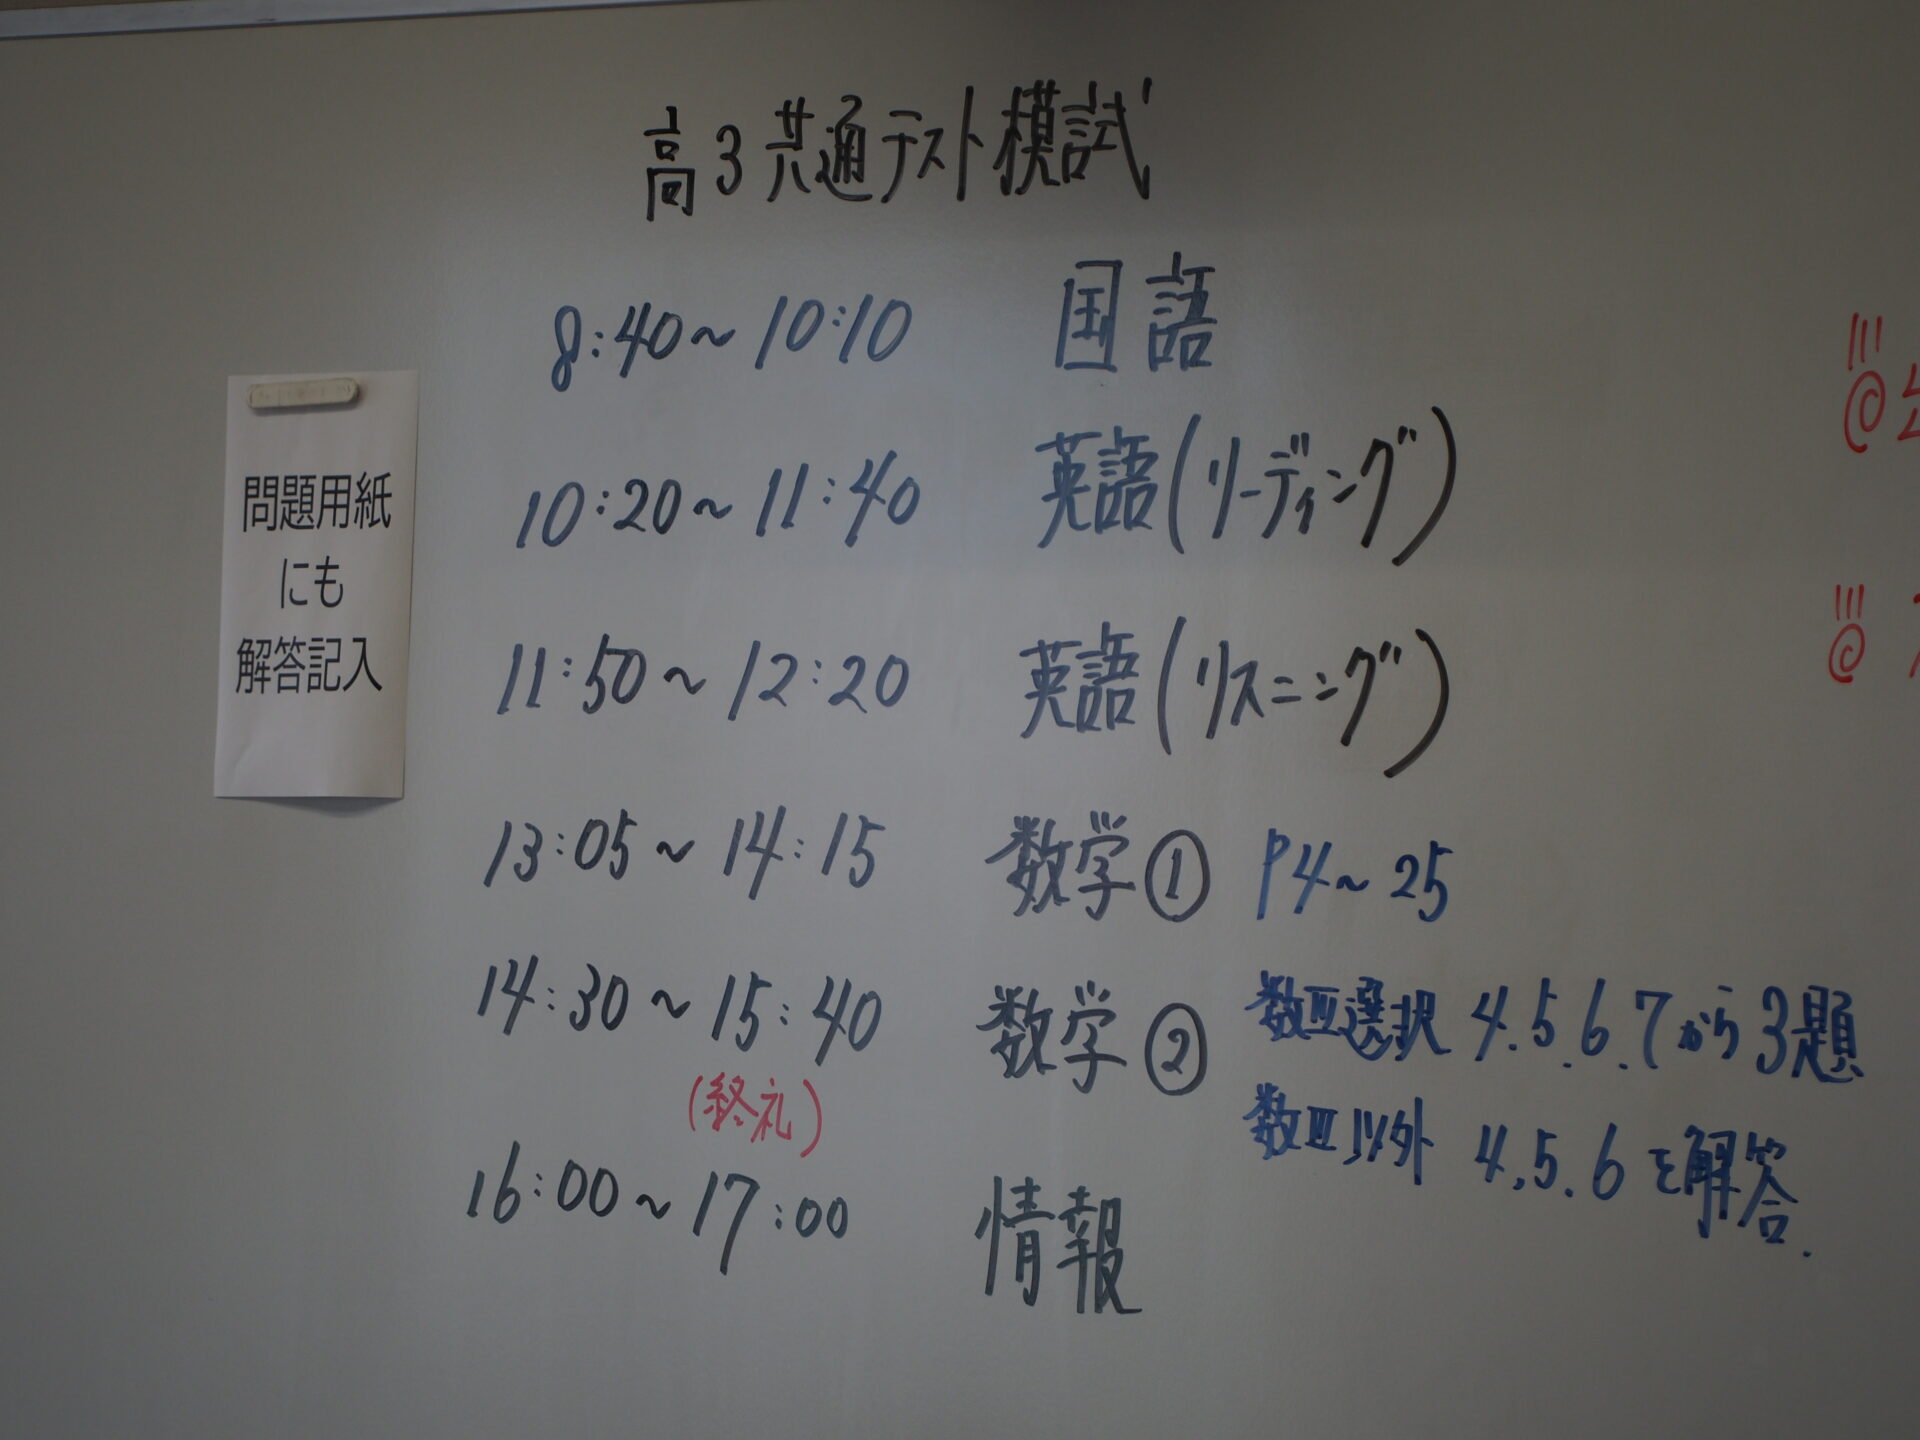 高3共通テスト模試
8:40～10:10 国語
10:20～11:40 英語(リーディング)
11:50～12:20 英語(リスニング)
13:05～14:15 数学① P4～25
14:30～15:40 数学② 数Ⅲ選択 4.5.6.7から3題
数Ⅲ以外 4,5.6を解答.
(終礼)
16:00～17:00 情報
問題用紙
にも
解答記入